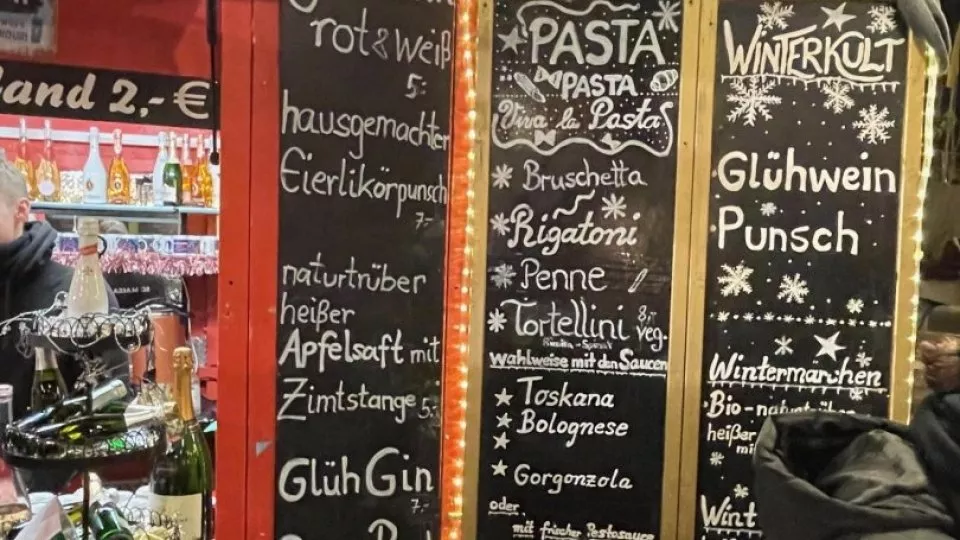 Pfand 2,- €
rot & weiß
5:-
hausgemachter
Eierlikörpunsch
7:-
naturtrüber
heißer
Apfelsaft mit
Zimtstange 5:-
Glüh Gin
7:-
PASTA
PASTA
Viva la Pasta
Bruschetta
Rigatoni
Penne
Tortellini
veg.
wahlweise mit den Saucen
Toskana
Bolognese
Gorgonzola
oder
mit frischer Pestosauce
WINTERKULT
Glühwein
Punsch
Wintermärchen
Bio-naturtrüber
heißer
mi
Wint